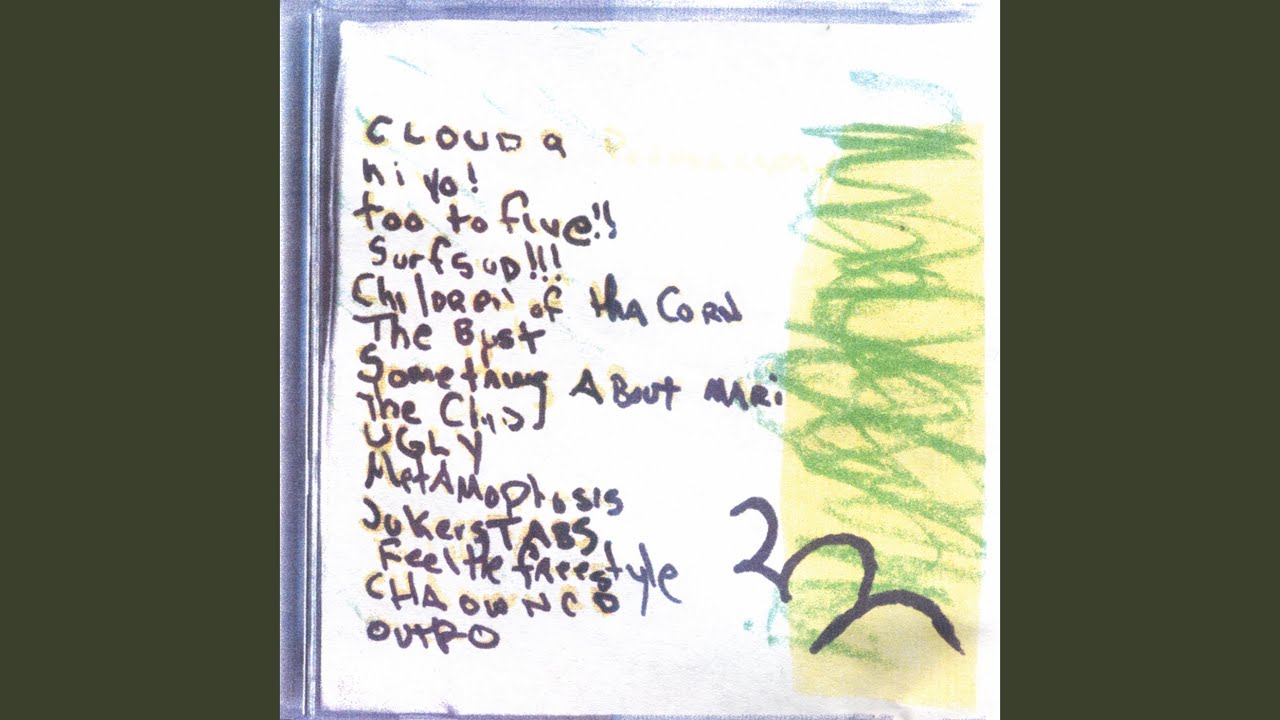 CLOUD 9
hi yo!
too to five!!
SurfsuD!!!
ChilDren of tha CorN
The Bust
Something ABout MARi
The Clubs
UGLY
MetAMophosis
JokersTABS
Feelthe freestyle
CHAOWNCD
OUTRO